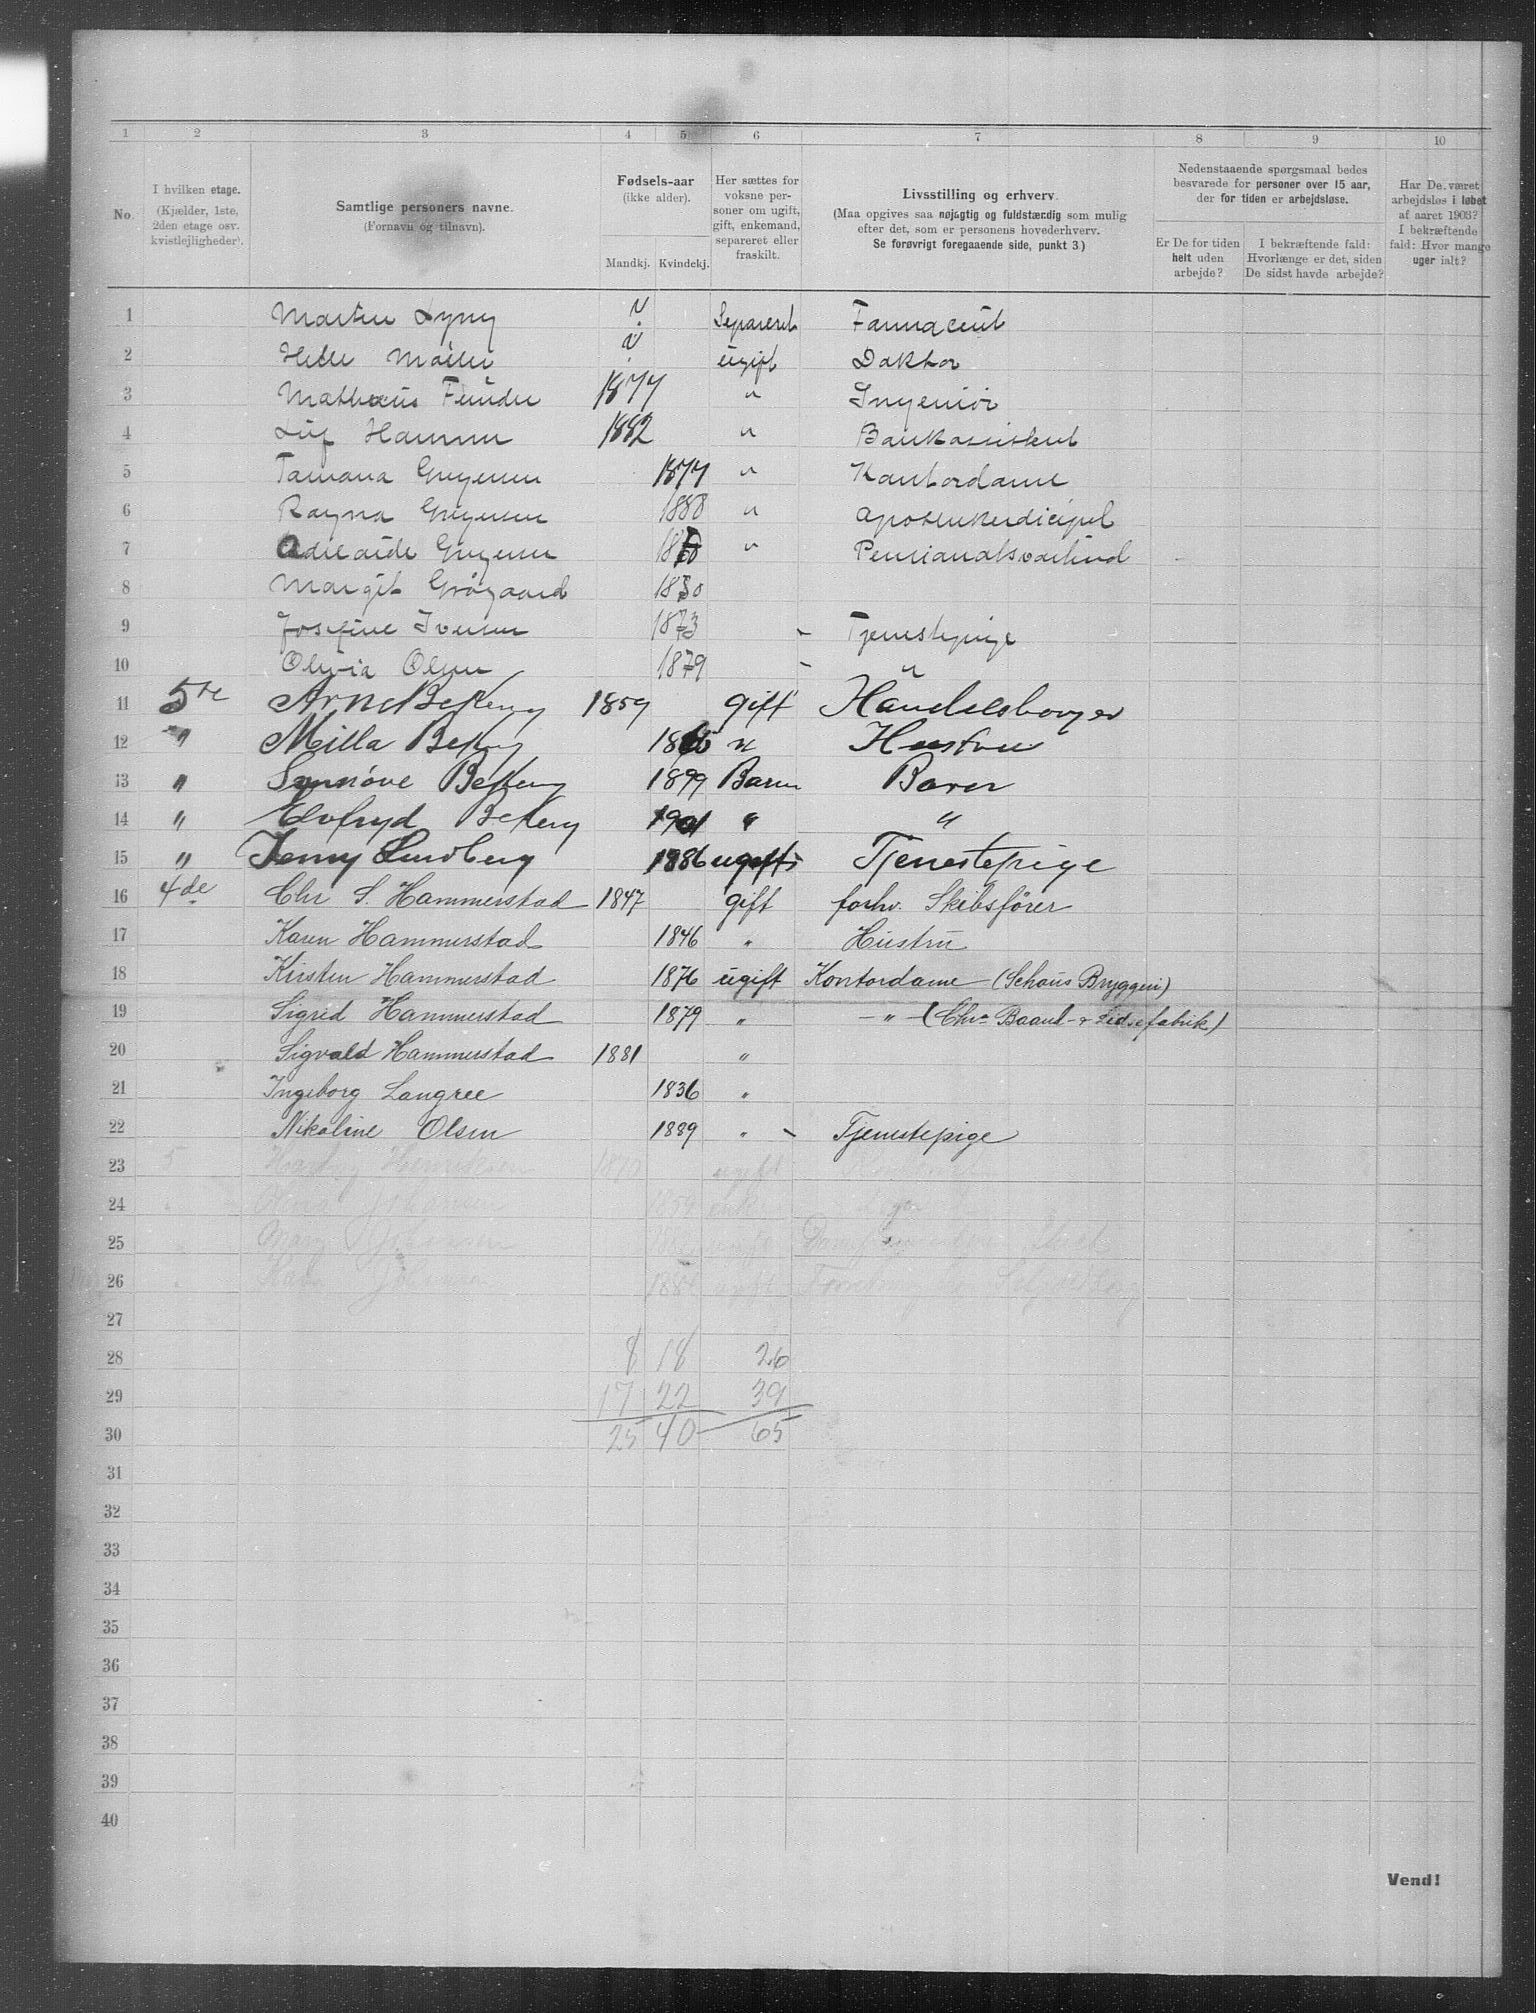 1 2 3 4 5 6 7 8 9 10
No.
I hvilken etage. (Kjælder, 1ste, 2den etage osv. kvistlejligheder).
Samtlige personers navne. (Fornavn og tilnavn).
Fødsels-aar (ikke alder).
Mandkj. Kvindekj.
Her sættes for voksne personer om ugift, gift, enkemand, separeret eller fraskilt.
Livsstilling og erhverv.
(Maa opgives saa nøjagtig og fuldstændig som mulig efter det, som er personens hovederhverv.
Se forøvrigt foregaaende side, punkt 3)
Nedenstaaende spørgsmaal bedes besvarede for personer over 15 aar, der for tiden er arbejdsløse.
Er De for tiden helt uden arbejde?
I bekræftende fald: Hvorlænge er det, siden De sidst havde arbejde?
Har De været arbejdsløs i løbet af aaret 1903? I bekræftende fald: Hvor mange uger ialt?
1 Martin Lyng ? Separeret Farmaceut
2 Møller ? ugift Doktor
3 1877 " Ingeniør
4 1882 " Bankassistent
5 Gregersen 1877 " Kontordame
6 Ragna Gregersen 1880 " Apothekerdicipel
7 Adelaide Gregersen " Pensionatsvertind
8 Margit Grøgaard
9 Josefine Iversen 1873 - Tjenestepige
10 Olivia Olsen 1879 - "
11 5te Arne Bekeng 1859 gift Handelsborger
12 " Milla " Hustru
13 " Synnøve 1899 Barn Barn
14 " 1901 " "
15 " Jenny Lindberg 1886 ugift Tjenestepige
16 4de Chr S. Hammerstad 1847 gift forhv. Skibsfører
17 Karen Hammerstad 1846 " Hustru
18 Kirsten Hammerstad 1876 ugift Kontordame (Schous Bryggeri)
19 Sigrid Hammerstad 1879 " - " - (Chra Baand - & fabrik)
20 Sigvald Hammerstad 1881 "
21 Ingeborg Langree 1836 "
22 Nikoline Olsen 1889 " - Tjenestepige
23 Henriksen ugift
24 Johansen 1859
25
26
27
28 8 18 26
29 17 22 39
30 25 40 65
31
32
33
34
35
36
37
38
39
40
Vend!